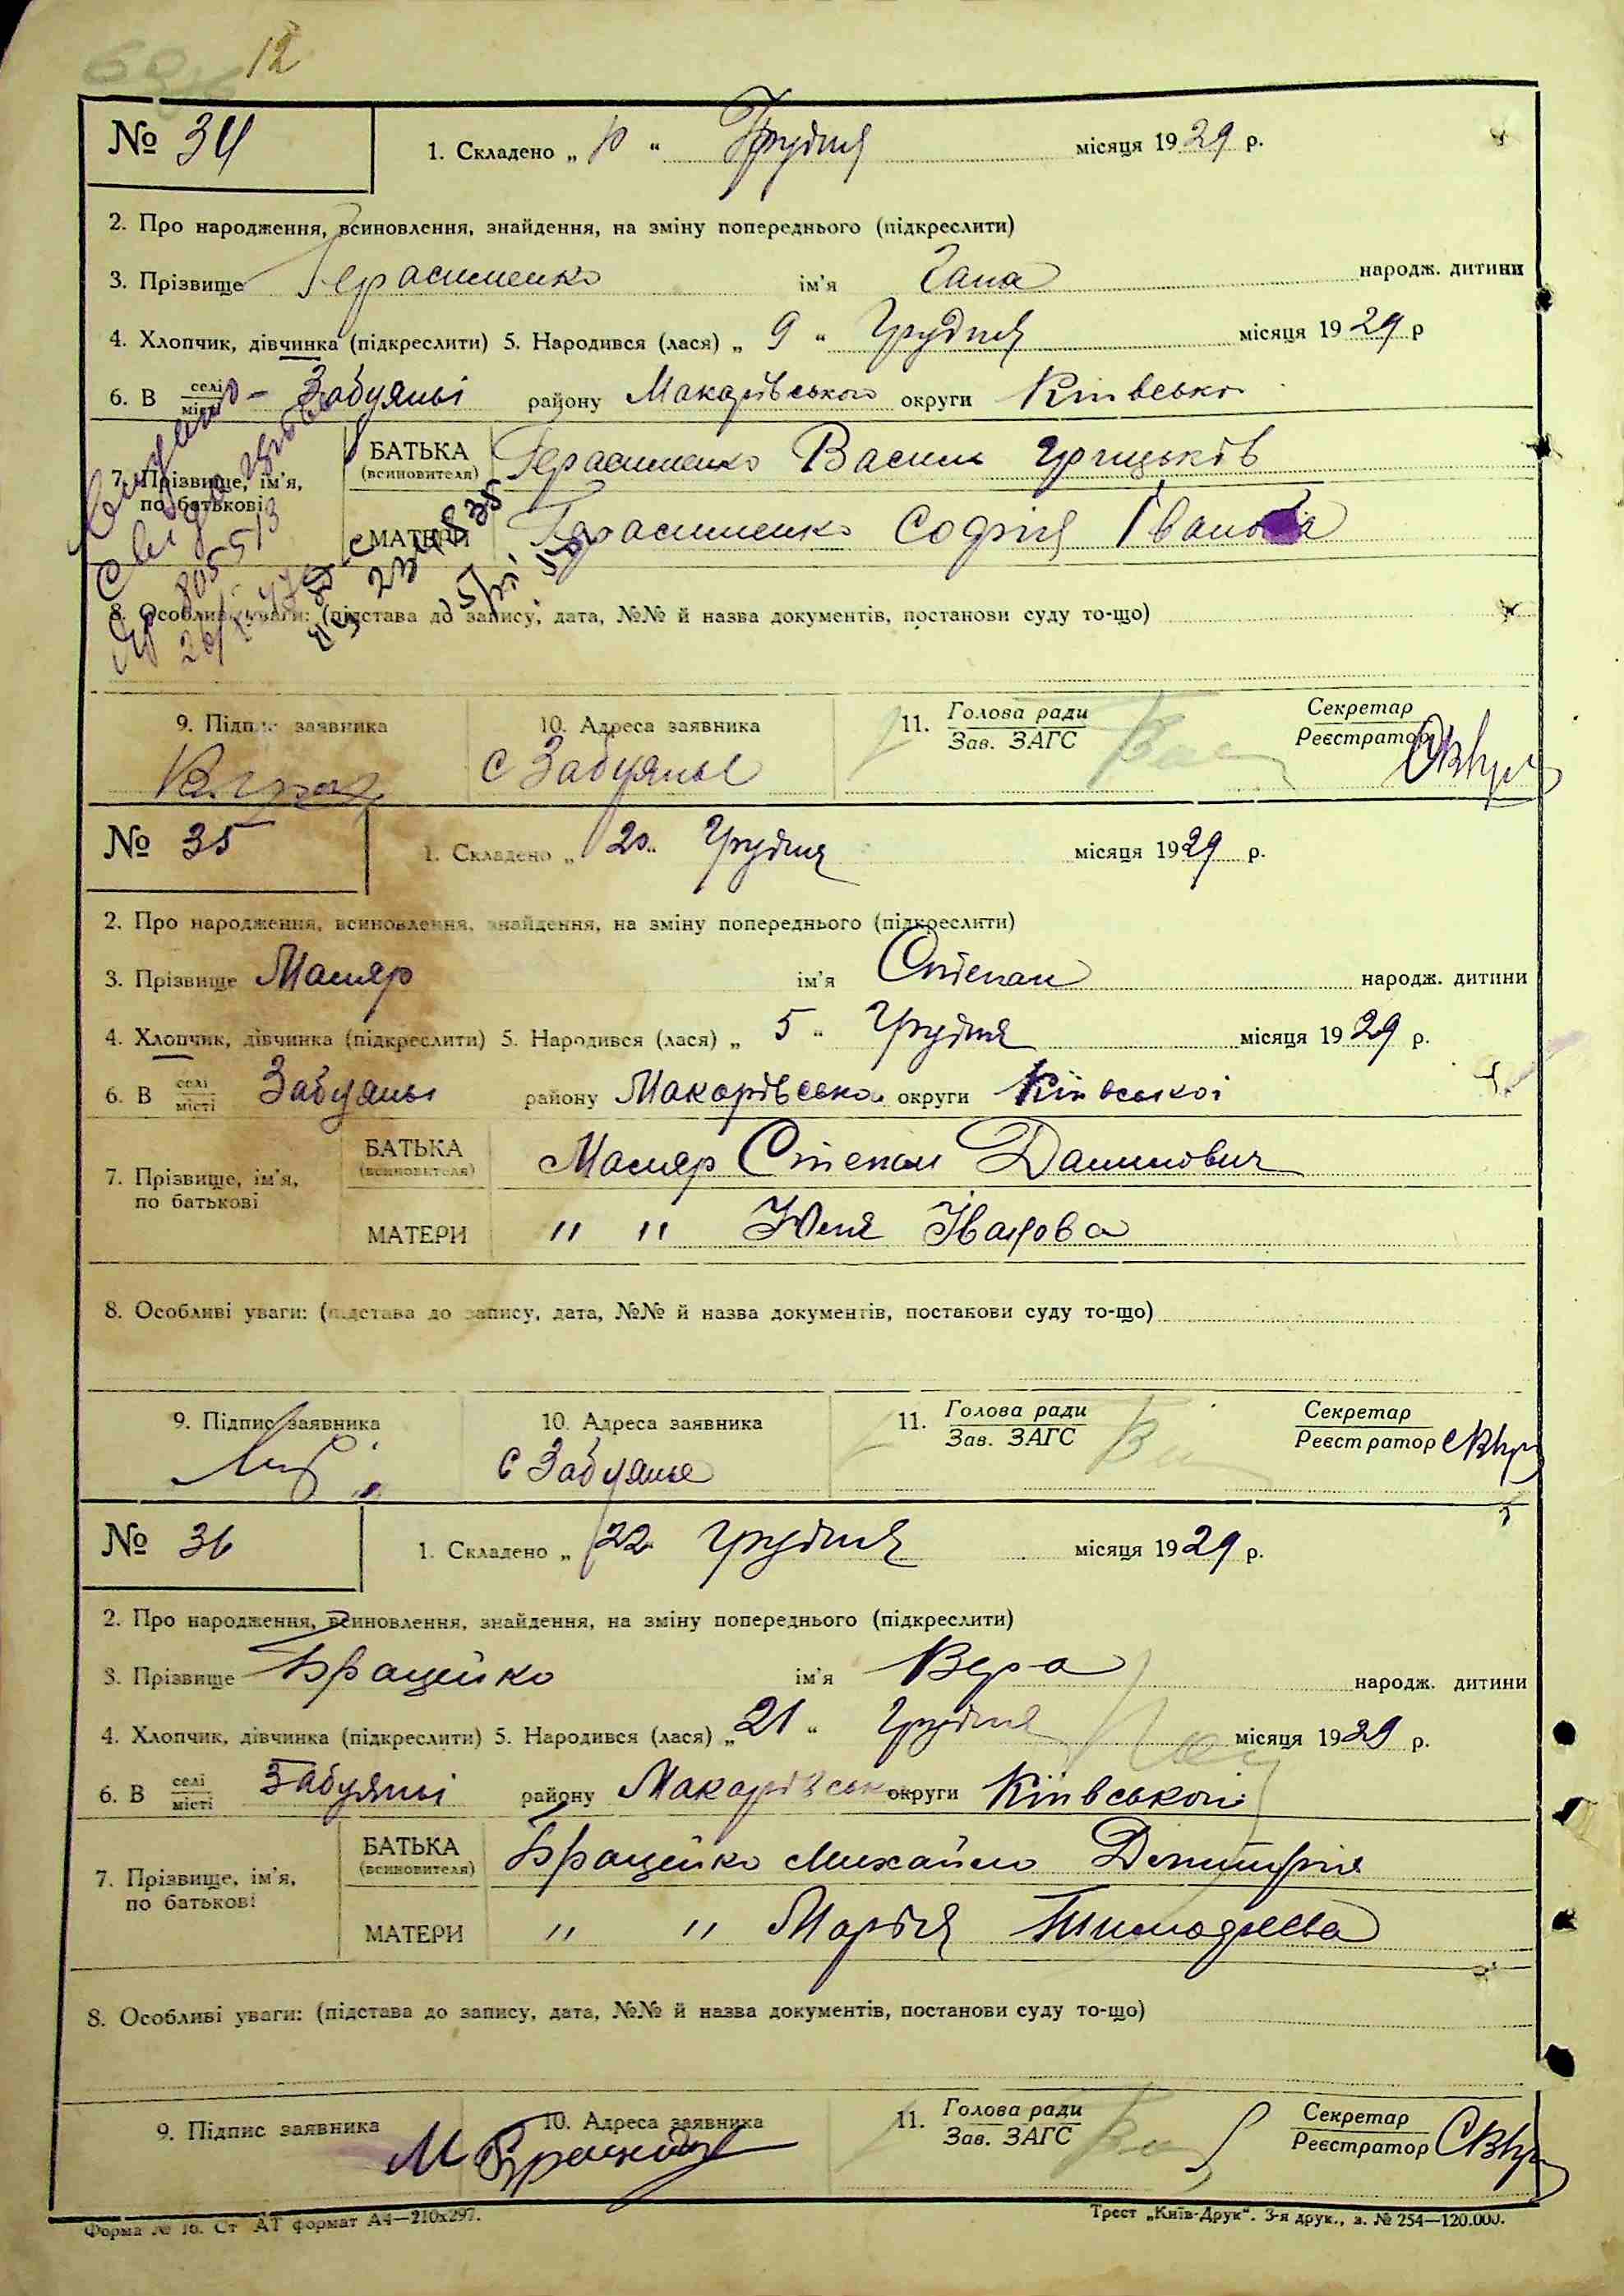 12
№ 34 1. Складено „ 10 “ Грудня місяця 1929 р.
2. Про народження, всиновлення, знайдення, на зміну попереднього (підкреслити)
3. Прізвище Герасименко ім'я Гана народж. дитини
4. Хлопчик, дівчинка (підкреслити) 5. Народився (лася) „ 9 “ Грудня місяця 1929 р
6. В селі місті Забуянні району Макарівського округи Київсько
7. Прізвище, ім'я, по батькові
БАТЬКА (всиновителя) Герасименко Васили Грицьків
МАТЕРИ Герасименко Софія Іванова
Видано
805513
8. Особливі уваги: (підстава до запису, дата, №№ й назва документів, постанови суду то-що)
9. Підпис заявника 10. Адреса заявника 11. Голова ради Зав. ЗАГС Секретар Реєстратор
с Забуянье
№ 35 1. Складено „ 20 “ Грудня місяця 1929 р.
2. Про народження, всиновлення, знайдення, на зміну попереднього (підкреслити)
3. Прізвище Маляр ім'я Степан народж. дитини
4. Хлопчик, дівчинка (підкреслити) 5. Народився (лася) „ 5 “ Грудня місяця 1929 р.
6. В селі місті Забуянні району Макарівсько округи Київської
7. Прізвище, ім'я, по батькові
БАТЬКА (всиновителя) Маляр Степан Данилович
МАТЕРИ " " Юля
8. Особливі уваги: (підстава до запису, дата, №№ й назва документів, постанови суду то-що)
9. Підпис заявника 10. Адреса заявника 11. Голова ради Зав. ЗАГС Секретар Реєстратор
с Забуянье
№ 36 1. Складено „ 22 “ грудня місяця 1929 р.
2. Про народження, всиновлення, знайдення, на зміну попереднього (підкреслити)
3. Прізвище Брацейко ім'я Вера народж. дитини
4. Хлопчик, дівчинка (підкреслити) 5. Народився (лася) „ 21 “ Грудня місяця 1929 р.
6. В селі місті Забуянні району Макарівськ округи Київської
7. Прізвище, ім'я, по батькові
БАТЬКА (всиновителя) Брацейко Михайло Дмитрія
МАТЕРИ " " Марія Тимофієва
8. Особливі уваги: (підстава до запису, дата, №№ й назва документів, постанови суду то-що)
9. Підпис заявника 10. Адреса заявника 11. Голова ради Зав. ЗАГС Секретар Реєстратор
Форма № 16. Ст АТ формат А4—210х297. Трест „Київ-Друк“. 3-я друк., з. № 254—120.000.